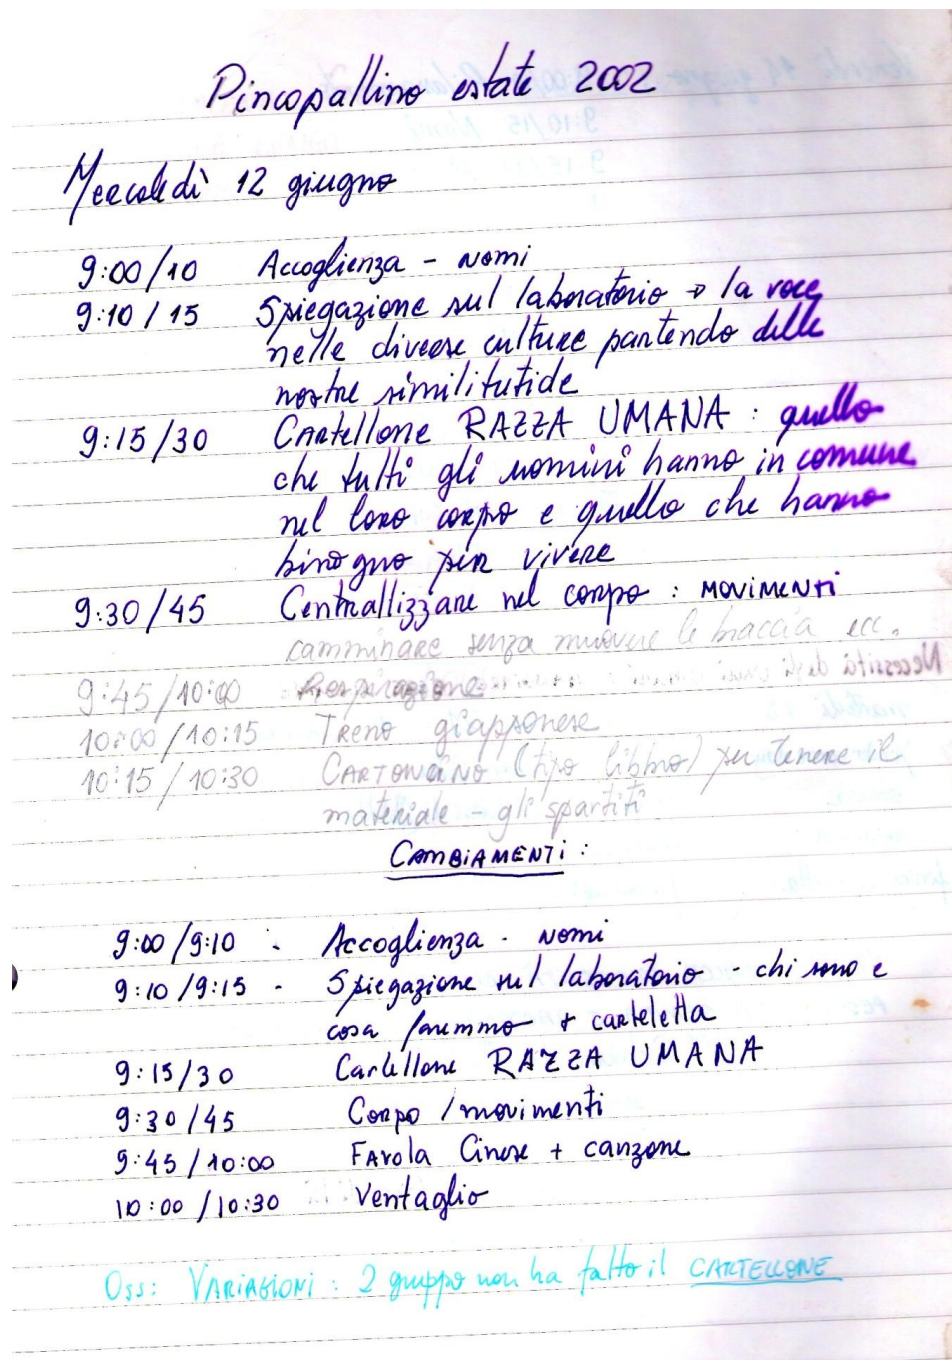 Pincopallino estate 2002
Mercoledì 12 giugno
9:00/10 Accoglienza - nomi
9:10/15 Spiegazione sul laboratorio → la voce
nelle diverse culture partendo delle
nostre similitutide
9:15/30 Cartellone RAZZA UMANA : quello
che tutti gli uomini hanno in comune
nel loro corpo e quello che hanno
bisogno per vivere
9:30/45 Centrallizzare nel corpo : MOVIMENTI
camminare senza muovere le braccia ecc.
9:45/10:00 Respirazione
10:00/10:15 Treno giapponese
10:15/10:30 CARTONCINO (tipo libbro) per tenere il
materiale - gli spartiti
CAMBIAMENTI :
9:00/9:10 - Accoglienza - nomi
9:10/9:15 - Spiegazione sul laboratorio - chi sono e
cosa faremmo + carteletta
9:15/30 Cartellone RAZZA UMANA
9:30/45 Corpo / movimenti
9:45/10:00 Favola Cinese + canzone
10:00/10:30 Ventaglio
Oss: VARIAZIONI : 2 gruppo non ha fatto il CARTELLONE